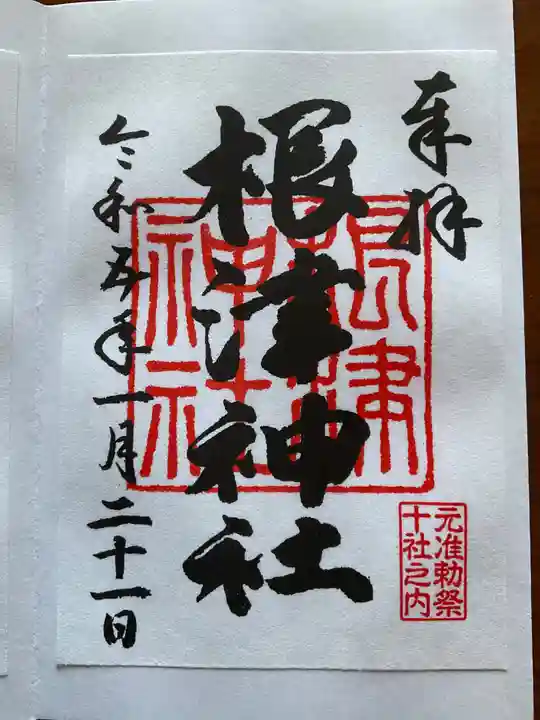 奉拝
根津神社
根津神社
元准勅祭
十社之内
令和五年一月二十一日